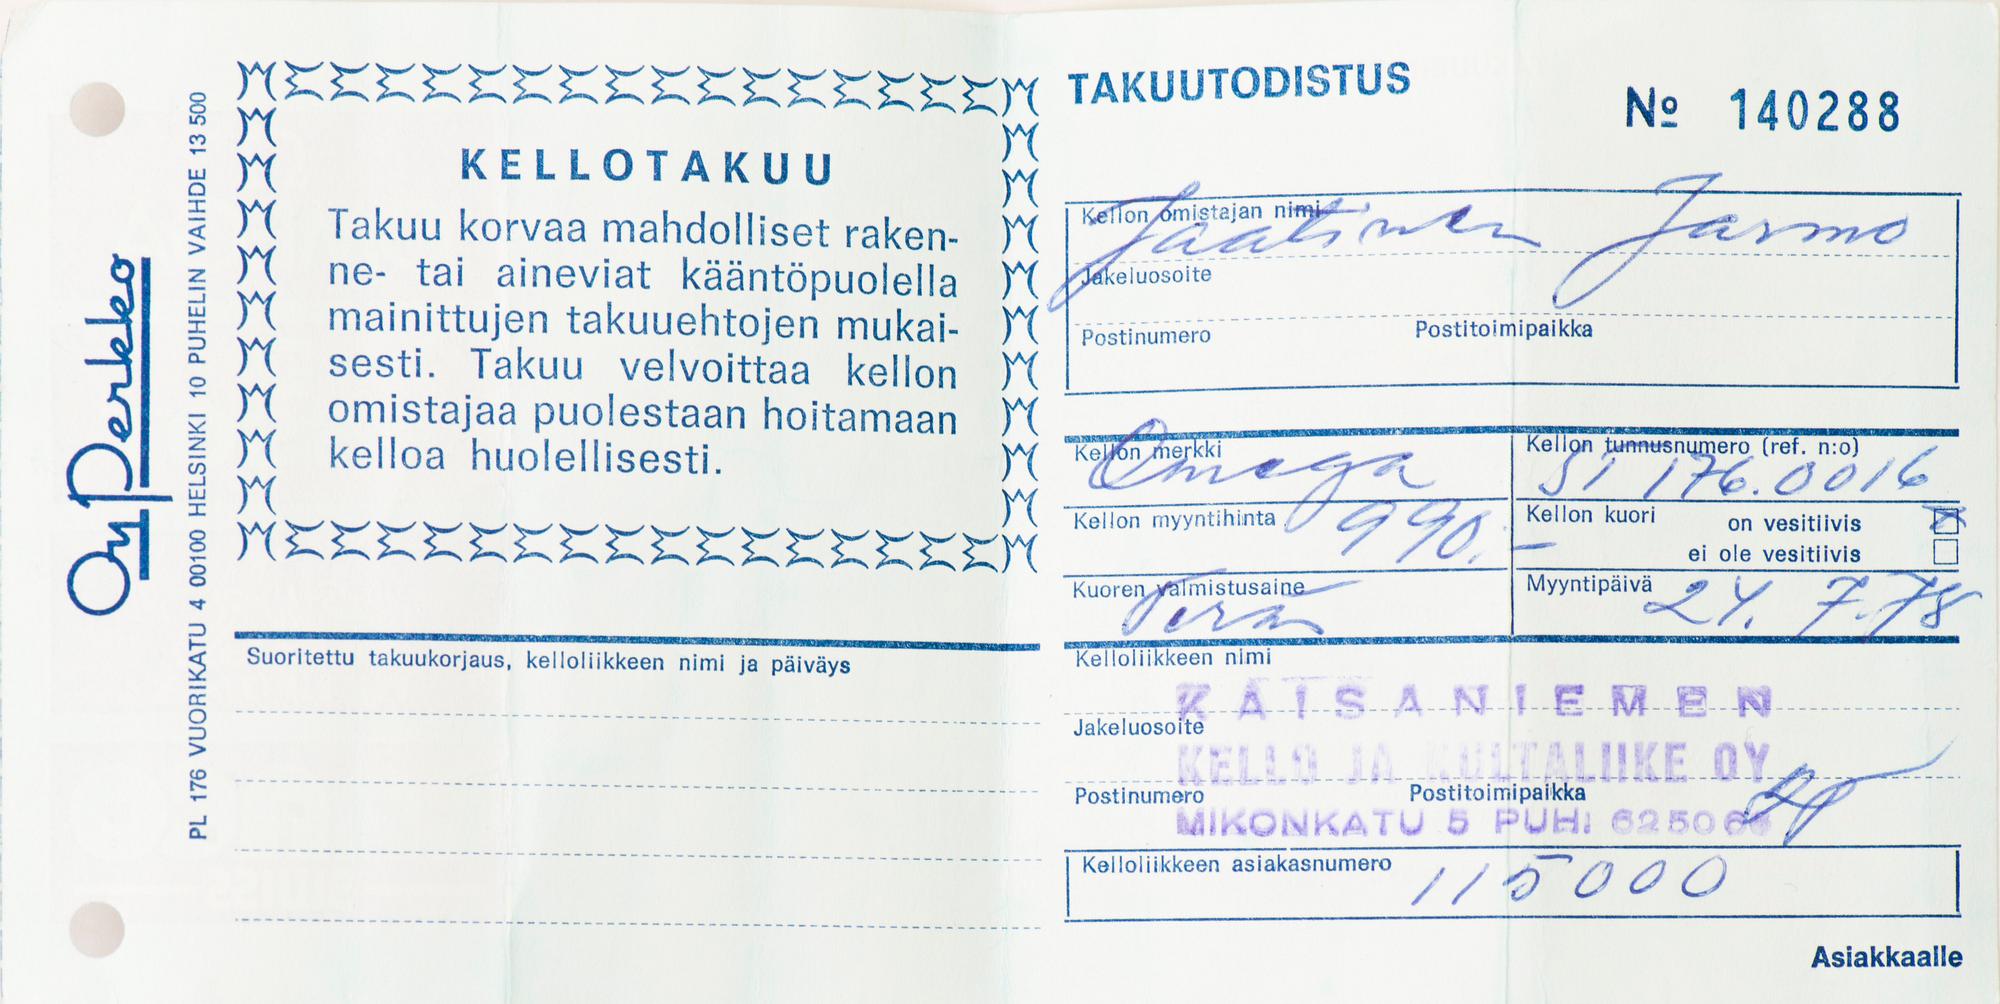 Oy Perkko
PL 176 VUORIKATU 4 00100 HELSINKI 10 PUHELIN VAIHDE 13 500
KELLOTAKUU
Takuu korvaa mahdolliset raken-
ne- tai aineviat kääntöpuolella
mainittujen takuuehtojen mukai-
sesti. Takuu velvoittaa kellon
omistajaa puolestaan hoitamaan
kelloa huolellisesti.
Suoritettu takuukorjaus, kelloliikkeen nimi ja päiväys
TAKUUTODISTUS
№ 140288
Kellon omistajan nimi
Jaatinen Jarmo
Jakeluosoite
Postinumero Postitoimipaikka
Kellon merkki
Omega
Kellon tunnusnumero (ref. n:o)
ST 176.0016
Kellon myyntihinta 990.-
Kellon kuori on vesitiivis
ei ole vesitiivis
Kuoren valmistusaine
Teräs
Myyntipäivä 24. 7.78
Kelloliikkeen nimi
KAISANIEMEN
Jakeluosoite
KELLO JA KULTALIIKE OY
Postinumero Postitoimipaikka
MIKONKATU 5 PUH:
Kelloliikkeen asiakasnumero 115000
Asiakkaalle